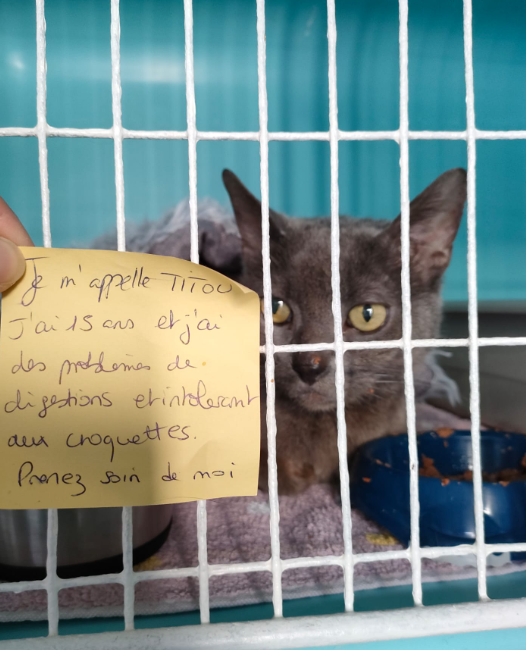 Je m'appelle TITOU
J'ai 15 ans et j'ai
des problèmes de
digestions et intolerant
aux croquettes.
Prenez soin de moi